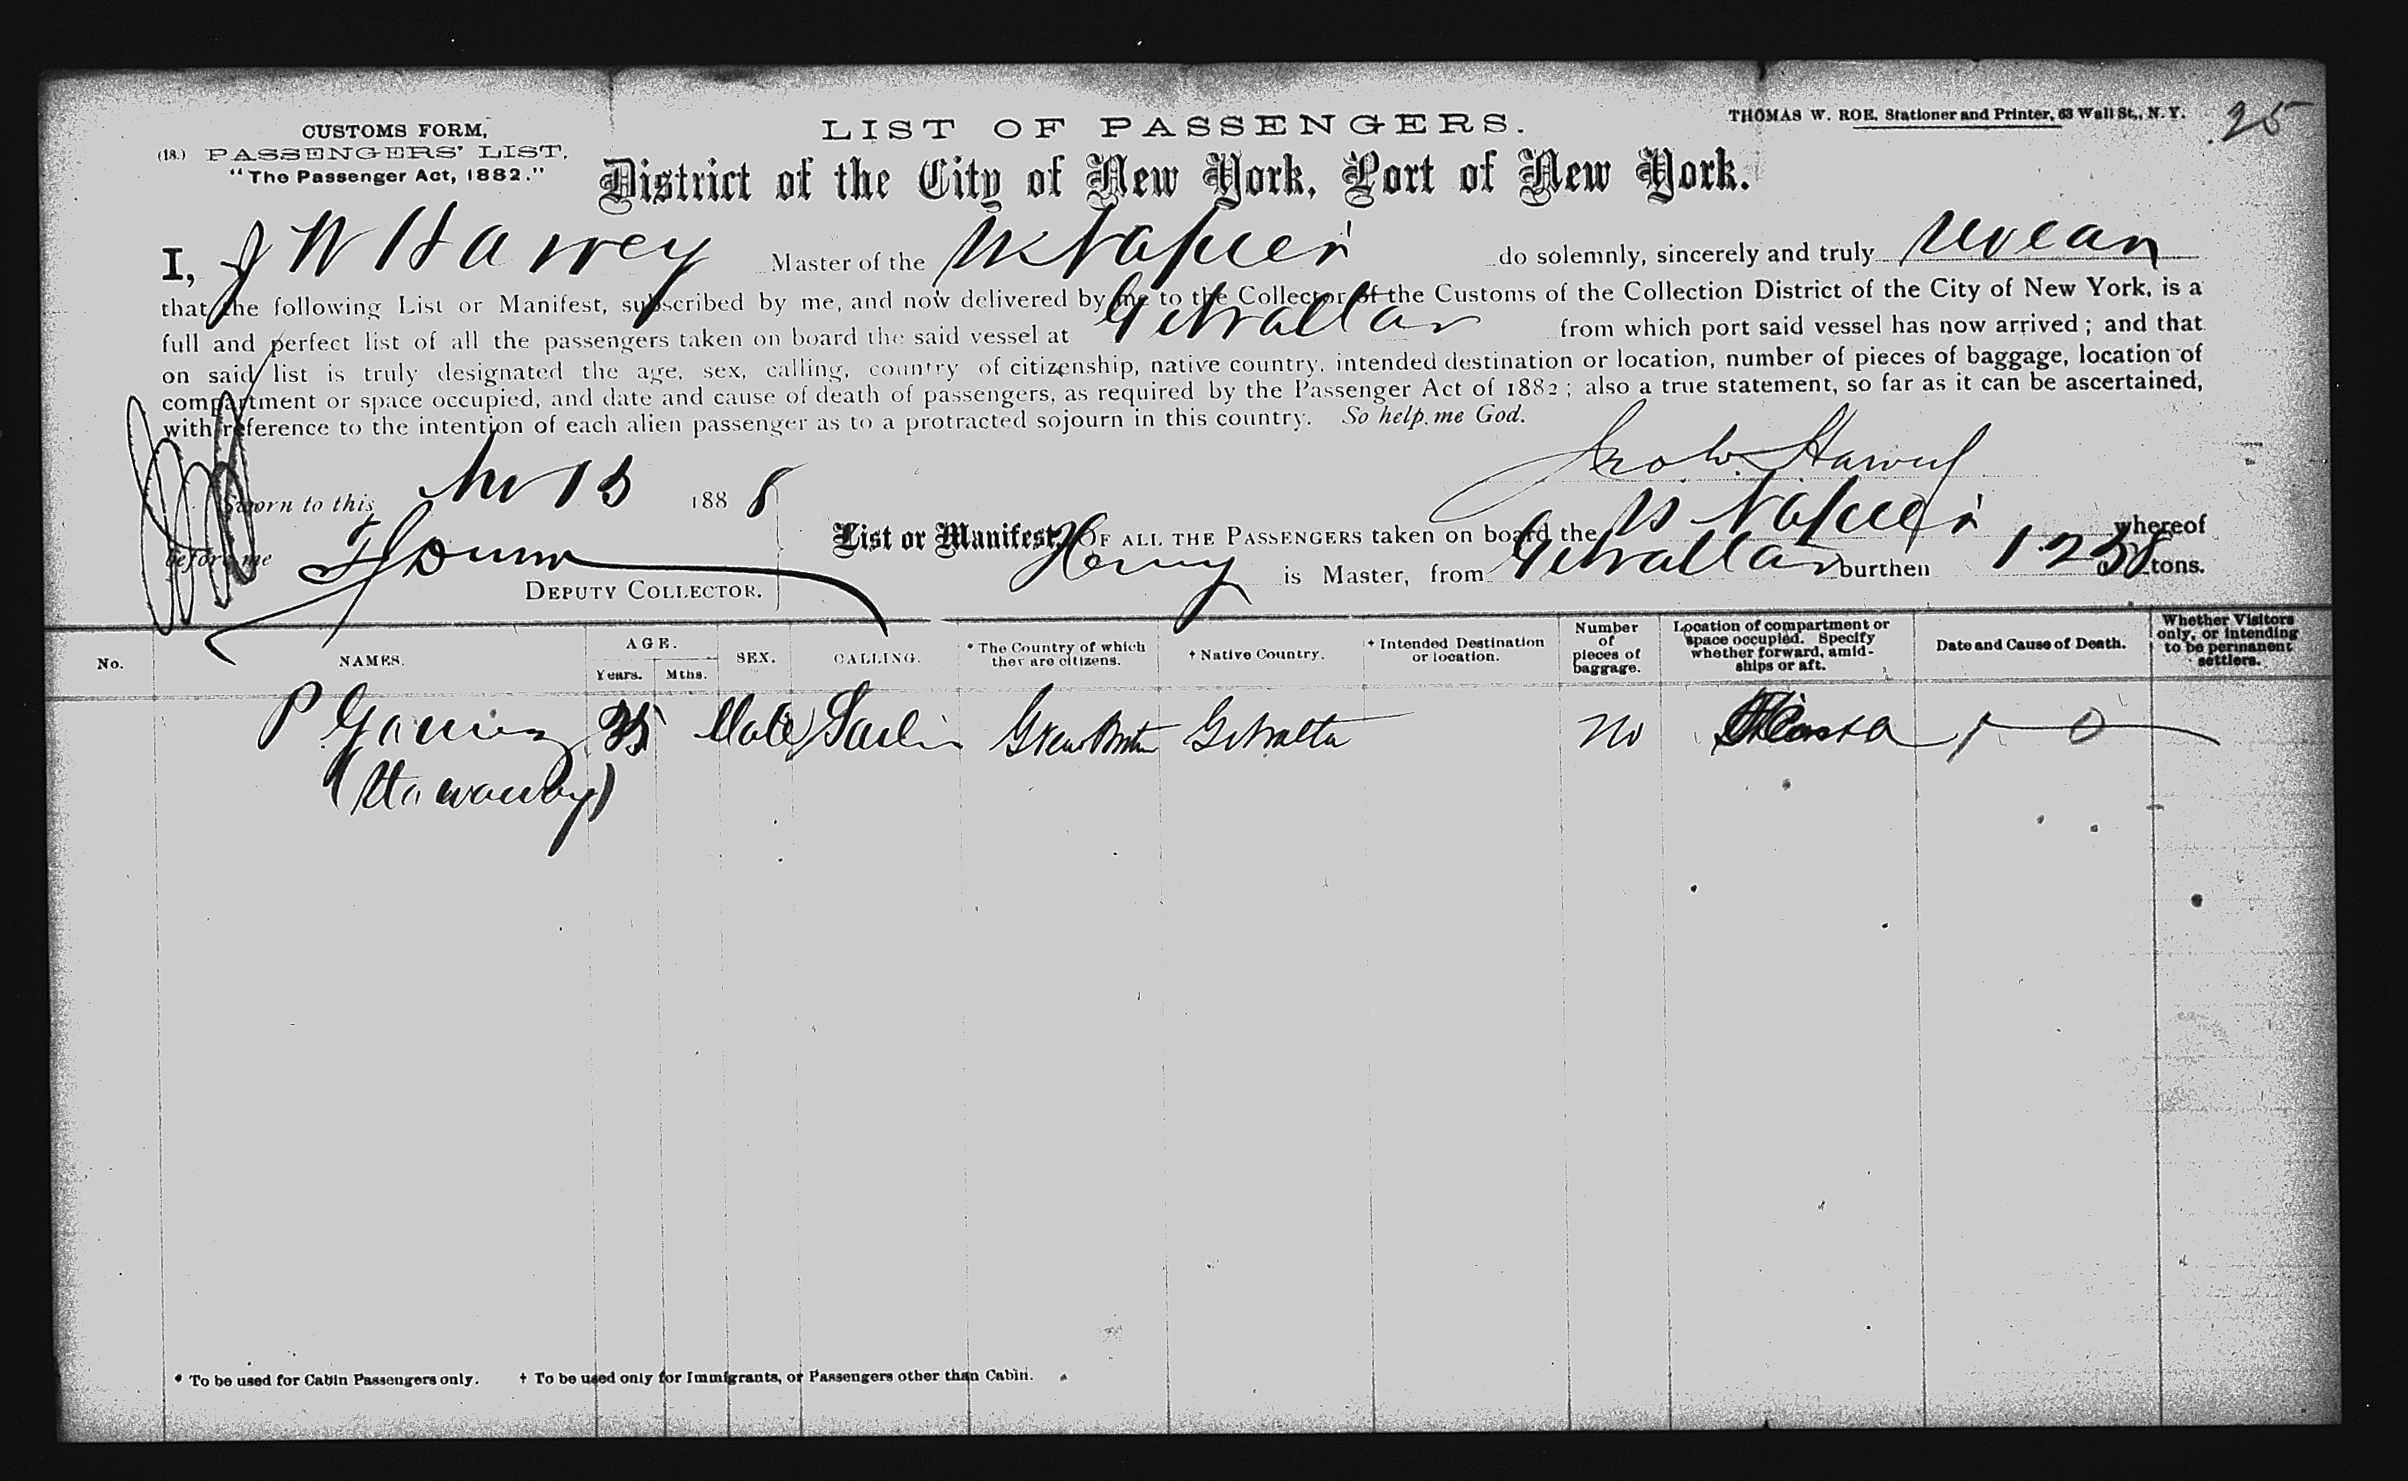 CUSTOMS FORM,
(18.) PASSENGERS' LIST.
"The Passenger Act, 1882."
LIST OF PASSENGERS.
THOMAS W. ROE, Stationer and Printer, 63 Wall St., N. Y.
25
District of the City of New York, Port of New York.
I, J W Harvey Master of the Napier do solemnly, sincerely and truly swear
that the following List or Manifest, subscribed by me, and now delivered by me to the Collector of the Customs of the Collection District of the City of New York, is a
full and perfect list of all the passengers taken on board the said vessel at Gibraltar from which port said vessel has now arrived; and that
on said list is truly designated the age, sex, calling, country of citizenship, native country, intended destination or location, number of pieces of baggage, location of
compartment or space occupied, and date and cause of death of passengers, as required by the Passenger Act of 1882; also a true statement, so far as it can be ascertained,
with reference to the intention of each alien passenger as to a protracted sojourn in this country. So help me God.
Jno W. Harvey
Sworn to this Nov 13 1888
before me
DEPUTY COLLECTOR.
List or Manifest, OF ALL THE PASSENGERS taken on board the Napier whereof
is Master, from Gibraltar burthen 1238 tons.
No.
NAMES.
AGE.
Years.
Mths.
SEX.
CALLING.
* The Country of which they are citizens.
† Native Country.
† Intended Destination or location.
Number of pieces of baggage.
Location of compartment or space occupied. Specify whether forward, amidships or aft.
Date and Cause of Death.
Whether Visitors only, or intending to be permanent settlers.
P Male Gibraltar No
(Stowaway)
* To be used for Cabin Passengers only. † To be used only for Immigrants, or Passengers other than Cabin.